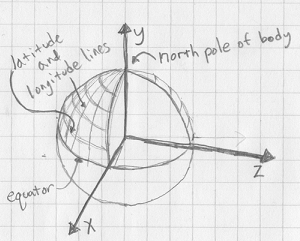 y
north pole of body
latitude
and
longitude lines
z
equator
x